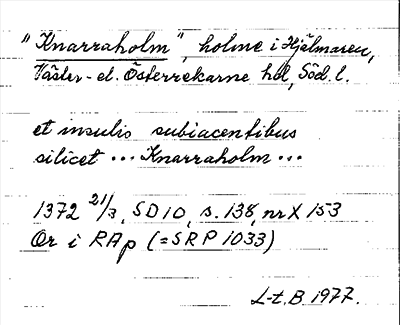 "Knarraholm", holme i Hjälmaren,
Väster- el. Österrekarne hd, Söd. l.
et insulis subiacentibus
silicet ... Knarraholm ...
1372 21/3, SD 10, s. 138, nr X 153
Or i RAp (= SRP 1033)
L-t. B. 1977.